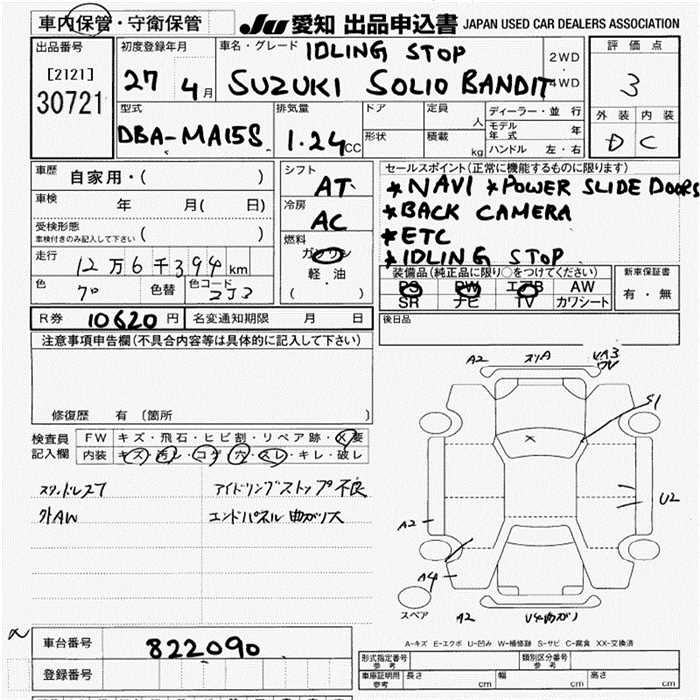 車内保管・守衛保管
JU 愛知 出品申込書 JAPAN USED CAR DEALERS ASSOCIATION
出品番号
[2121]
30721
初度登録年月
27 4月
車名・グレード
IDLING STOP
SUZUKI SOLIO BANDIT
2WD
・
4WD
評価点
3
外装 内装
D C
型式
DBA-MA15S
排気量
1.24CC
ドア
形状
定員 人
積載 kg
ディーラー・並行
モデル年式 年
ハンドル 左・右
車歴 自家用・( )
車検 年 月( 日)
受検形態
車検付きのみ記入して下さい ( )
走行 12万6千394km
色 色替 色コード ZJ3
シフト
AT
冷房
AC
燃料
ガソリン
軽・油
( )
セールスポイント(正常に機能するものに限ります)
*NAVI *POWER SLIDE DOORS
*BACK CAMERA
*ETC
*IDLING STOP
装備品(純正品に限り○をつけてください)
PS PW エアB AW
SR ナビ TV カワシート
新車保証書
有・無
R券 10620円 名変通知期限 月 日
後日品
注意事項申告欄(不具合内容等は具体的に記入して下さい)
修復歴 有 〔箇所 〕
検査員
記入欄
FW キズ・飛石・ヒビ割・リペア跡・X要
内装 キズ・汚レ・コゲ・穴・スレ・キレ・破レ
スタッドレス7 アイドリングストップ不良
外AW エンドパネル曲ガリ大
A2 スリA
S1
U2
A2
A4
スペア
A2
A-キズ E-エクボ U-凹み W-補修跡 S-サビ C-腐食 XX-交換済
車台番号 822090
登録番号
形式指定番号
参考
類別区分番号
参考
車庫証明用
参考
長さ cm 幅 cm 高さ cm